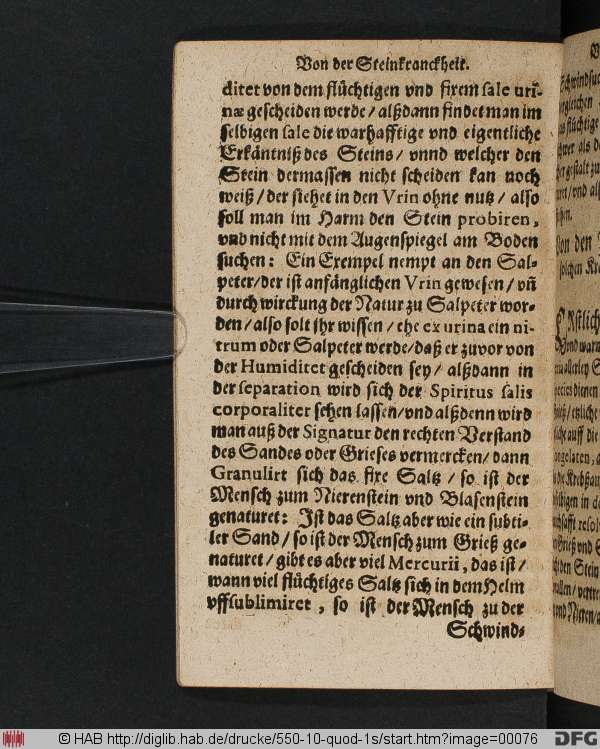 Von der Steinkranckheit.
ditet von dem flüchtigen vnd fixem sale uri-
næ gescheiden werde / alßdann findet man im
selbigen sale die warhafftige vnd eigentliche
Erkäntniß des Steins / vnnd welcher den
Stein dermassen nicht scheiden kan noch
weiß / der siehet in den Vrin ohne nutz / also
soll man im Harm den Stein probiren,
vnd nicht mit dem Augenspiegel am Boden
suchen: Ein Exempel nempt an den Sal-
peter / der ist anfänglichen Vrin gewesen / vñ
durch wirckung der Natur zu Salpeter wor-
den / also solt jhr wissen / ehe ex urina ein ni-
trum oder Salpeter werde / daß er zuvor von
der Humiditet gescheiden sey / alßdann in
der separation wird sich der Spiritus salis
corporaliter sehen lassen / vnd alßdenn wird
man auß der Signatur den rechten Verstand
des Sandes oder Grieses vermercken / dann
Granulirt sich das fixe Saltz / so ist der
Mensch zum Nierenstein vnd Blasenstein
genaturet: Ist das Saltz aber wie ein subti-
ler Sand / so ist der Mensch zum Grieß ge-
naturet / gibt es aber viel Mercurii, das ist /
wann viel flüchtiges Saltz sich in dem Helm
vffsublimiret, so ist der Mensch zu der
Schwind-
© HAB http://diglib.hab.de/drucke/550-10-quod-1s/start.htm?image=00076
DFG